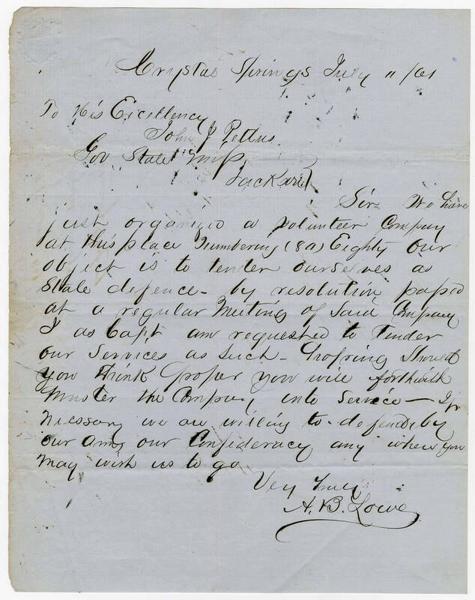 Crystal Springs July 11/61
To His Excellency
John J Pettus
Gov State Miss
Jackson
Sir We have
just organized a volunteer Company
at this place numbering (80) Eighty our
object is to tender ourselves as
State defence - by resolution passed
at a regular meeting of said Company
I as Capt am requested to tender
our services as such - Hopeing should
you think proper you will forthwith
muster the Company into service - If
necessary we are willing to defend by
our arms our Confederacy any where you
may wish us to go
Very Truly
A. B. Lowe